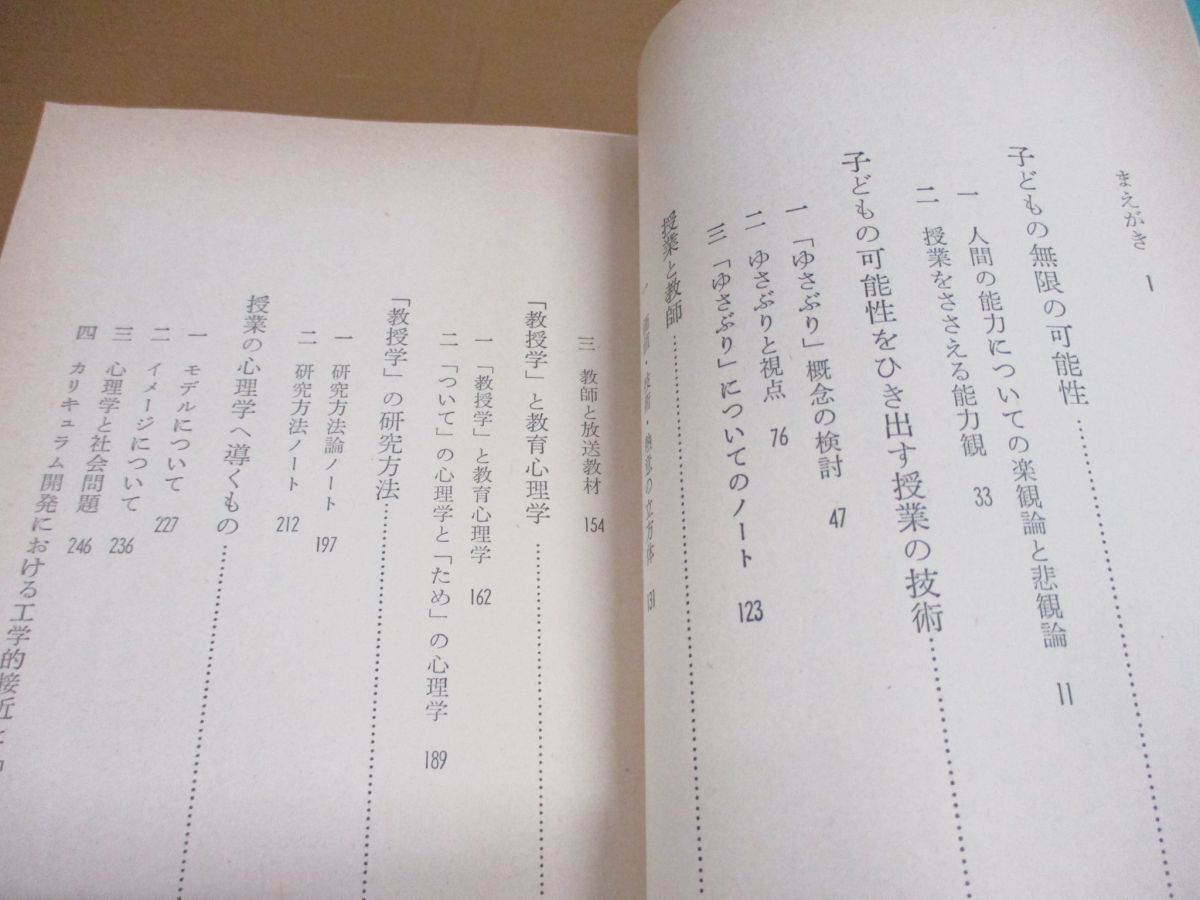 まえがき 1
子どもの無限の可能性…………
一 人間の能力についての楽観論と悲観論 11
二 授業をささえる能力観 33
子どもの可能性をひき出す授業の技術…………
一 「ゆさぶり」概念の検討 47
二 ゆさぶりと視点 76
三 「ゆさぶり」についてのノート 123
授業と教師…………
一 ・技術・ の立方体 131
三 教師と放送教材 154
「教授学」と教育心理学…………
一 「教授学」と教育心理学 162
二 「ついて」の心理学と「ため」の心理学 189
「教授学」の研究方法…………
一 研究方法論ノート 197
二 研究方法ノート 212
授業の心理学へ導くもの…………
一 モデルについて 227
二 イメージについて 236
三 心理学と社会問題 246
四 カリキュラム開発における工学的接近と